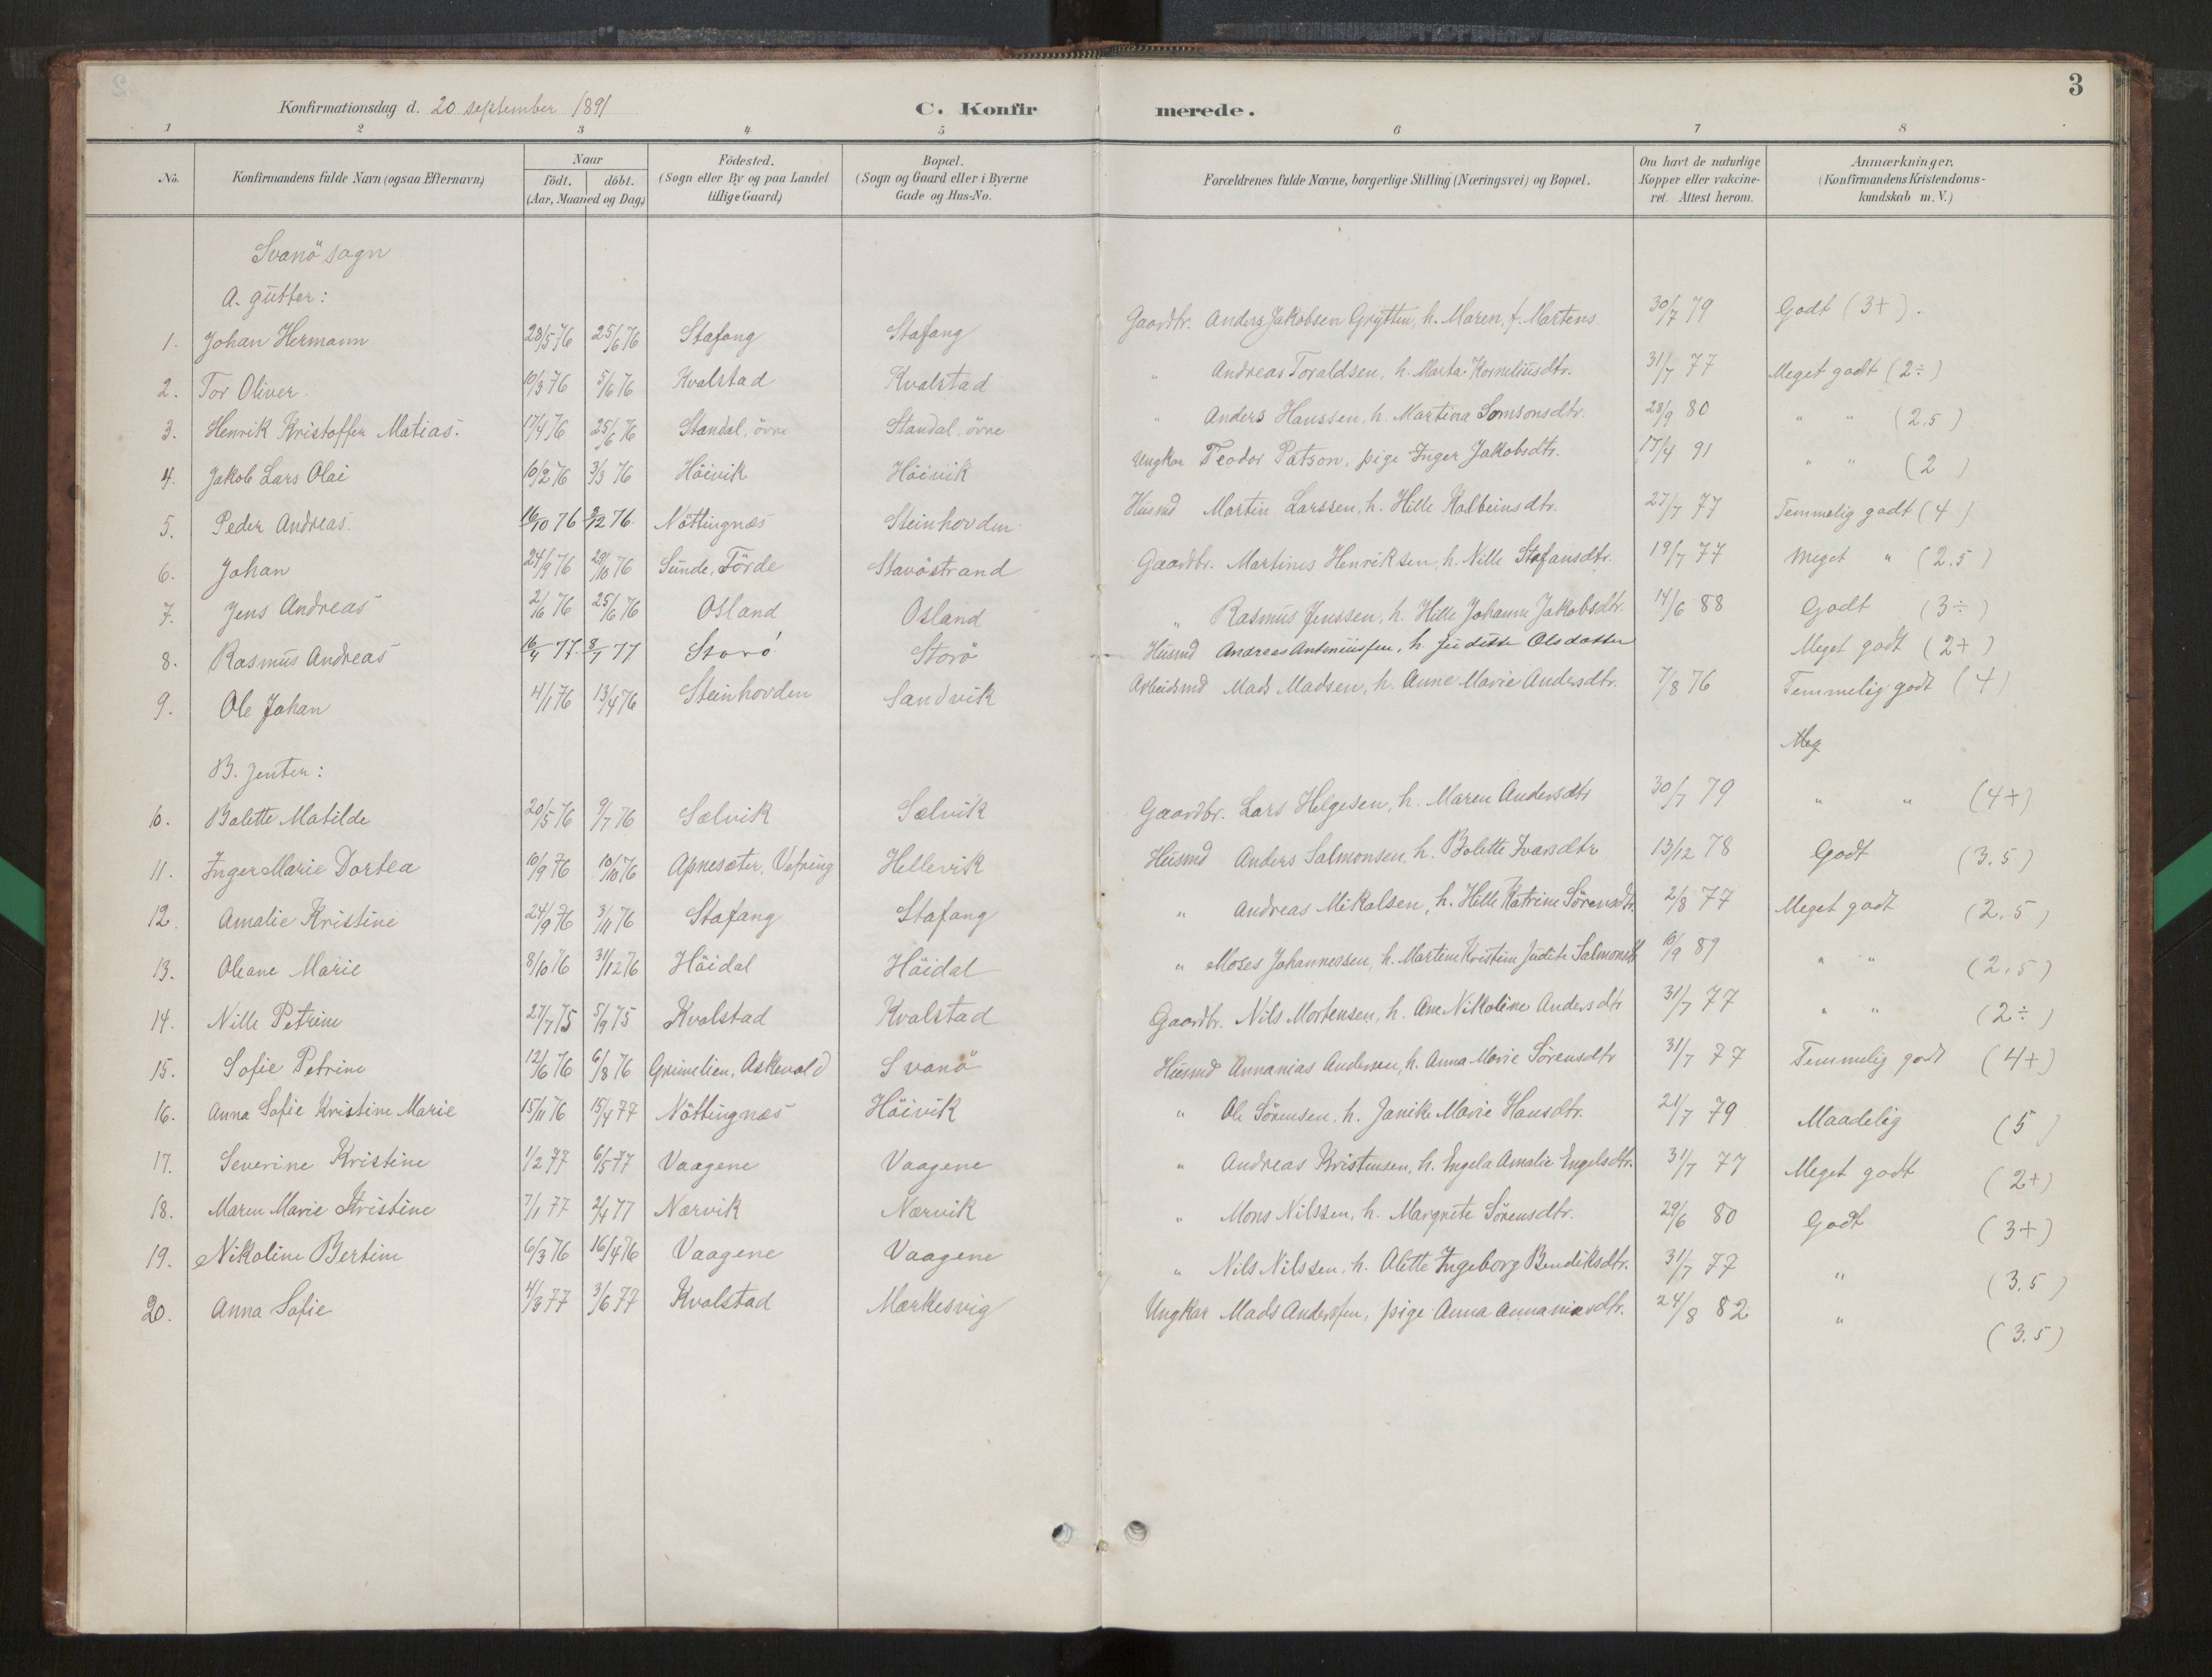 3
Konfirmationsdag d. 20 september 1891 C. Konfirmerede.
1 2 3 4 5 6 7 8
No. Konfirmandens fulde Navn (ogsaa Efternavn) Naar födt. döbt. (Aar, Maaned og Dag) Födested. (Sogn eller By og paa Landet tillige Gaard) Bopæl. (Sogn og Gaard eller i Byerne Gade og Hus-No. Forældrenes fulde Navne, borgerlige Stilling (Næringsvei) og Bopæl. Om havt de naturlige Kopper eller vakcineret. Attest herom. Anmærkninger. (Konfirmandens Kristendomskundskab m. V.)
Svanö sogn
A. gutter:
1. Johan Hermann 28/5 76 25/6 76 Stafang Stafang Gaardbr. Anders Jakobsen Grytten, h. Maren, f. Martens. 30/7 79 Godt (3+).
2. Tor Oliver. 10/3 76 5/6 76 Kvalstad Kvalstad " Andreas Toraldsen, h. Marta Korneliusdtr. 31/7 77 Meget godt (2÷)
3. Henrik Kristoffer Matias. 17/4 76 25/6 76 Standal, övre Standal, övre " Anders Hanssen, h. Martina Somsonsdtr. 28/9 80 " " (2,5)
4. Jakob Lars Olai 10/2 76 3/3 76 Höivik Höivik Ungkar Teodor Patson, pige Inger Jakobsdtr. 15/4 91 " " (2)
5. Peder Andreas. 16/10 76 3/12 76. Nöttingnæs Steinhovden Husmd Martin Larssen, h. Hille Kolbeinsdtr. 27/7 77 Temmelig godt (4)
6. Johan 24/9 76 29/10 76 Sunde, Förde Stavöstrand Gaardbr. Martines Henriksen, h. Nille Stafansdtr. 19/7 77 Meget " (2.5)
7. Jens Andreas 2/6 76 25/6 76 Osland Osland " Rasmus Jenssen, h. Hille Johanne Jakobsdtr. 14/6 88 Godt (3÷)
8. Rasmus Andreas 16/4 77. 8/7 77 Storö Storö Husmd Andreas Antoniussen, h. Juditte Olsdatter Meget godt (2+)
9. Ole Johan 4/1 76 13/4 76 Steinhovden Sandvik Arbeidsmd Mads Madsen, h. Anne Marie Andersdtr. 7/8 76 Temmelig godt (4)
Meg
B. Jenter:
10. Bolette Matilde 20/5 76 9/7 76 Sælvik Sælvik Gaardbr. Lars Helgesen, h. Maren Andersdtr 30/7 79 " " (4+)
11. Inger Marie Dortea 10/9 76 10/10 76 Apnesæter, Vefring Hellevik Husmd Anders Salmonsen, h. Bolette Ivarsdtr 13/12 78 Godt (3.5)
12. Amalie Kristine 24/9 76 3/11 76 Stafang Stafang " Andreas Mikalsen, h. Hille Katrine Sörensdtr. 2/8 77 Meget godt (2.5)
13. Oleane Marie 8/10 76 31/12 76 Höidal Höidal " Moses Johannessen, h. Martine Kristine Judite Salmonsdtr 10/9 89 " " (2.5)
14. Nille Petrine 27/7 75 5/9 75 Kvalstad Kvalstad Gaardbr. Nils Mortensen, h. Ane Nikoline Andersdtr 31/7 77 " " (2÷)
15. Sofie Petrine 12/6 76 6/8 76 Grimelien, Askevold Svanö Husmd Annanias Andersen, h. Anna Marie Sörensdtr 31/7 77 Temmelig godt (4+)
16. Anna Sofie Kristine Marie 15/11 76 15/4 77 Nöttingnæs Höivik " Ole Sörensen, h. Janike Marie Hansdtr. 21/7 79 Maadelig (5)
17. Severine Kristine 1/2 77 6/5 77 Vaagene Vaagene " Andreas Kristensen, h. Engela Amalie Engelsdtr. 31/7 77 Meget godt (2+)
18. Maren Marie Kristine 7/1 77 2/4 77 Nærvik Nærvik " Mons Nilssen, h. Margrete Sörensdtr. 29/6 80 Godt (3+)
19. Nikoline Bertine 6/3 76 16/4 76 Vaagene Vaagene " Nils Nilssen, h. Olette Ingeborg Bendiksdtr. 31/7 77 " (3.5)
20. Anna Sofie 4/3 77 3/6 77 Kvalstad Markesvig Ungkar Mads Anderssen, pige Anna Annaniasdtr. 24/8 82 " (3.5)